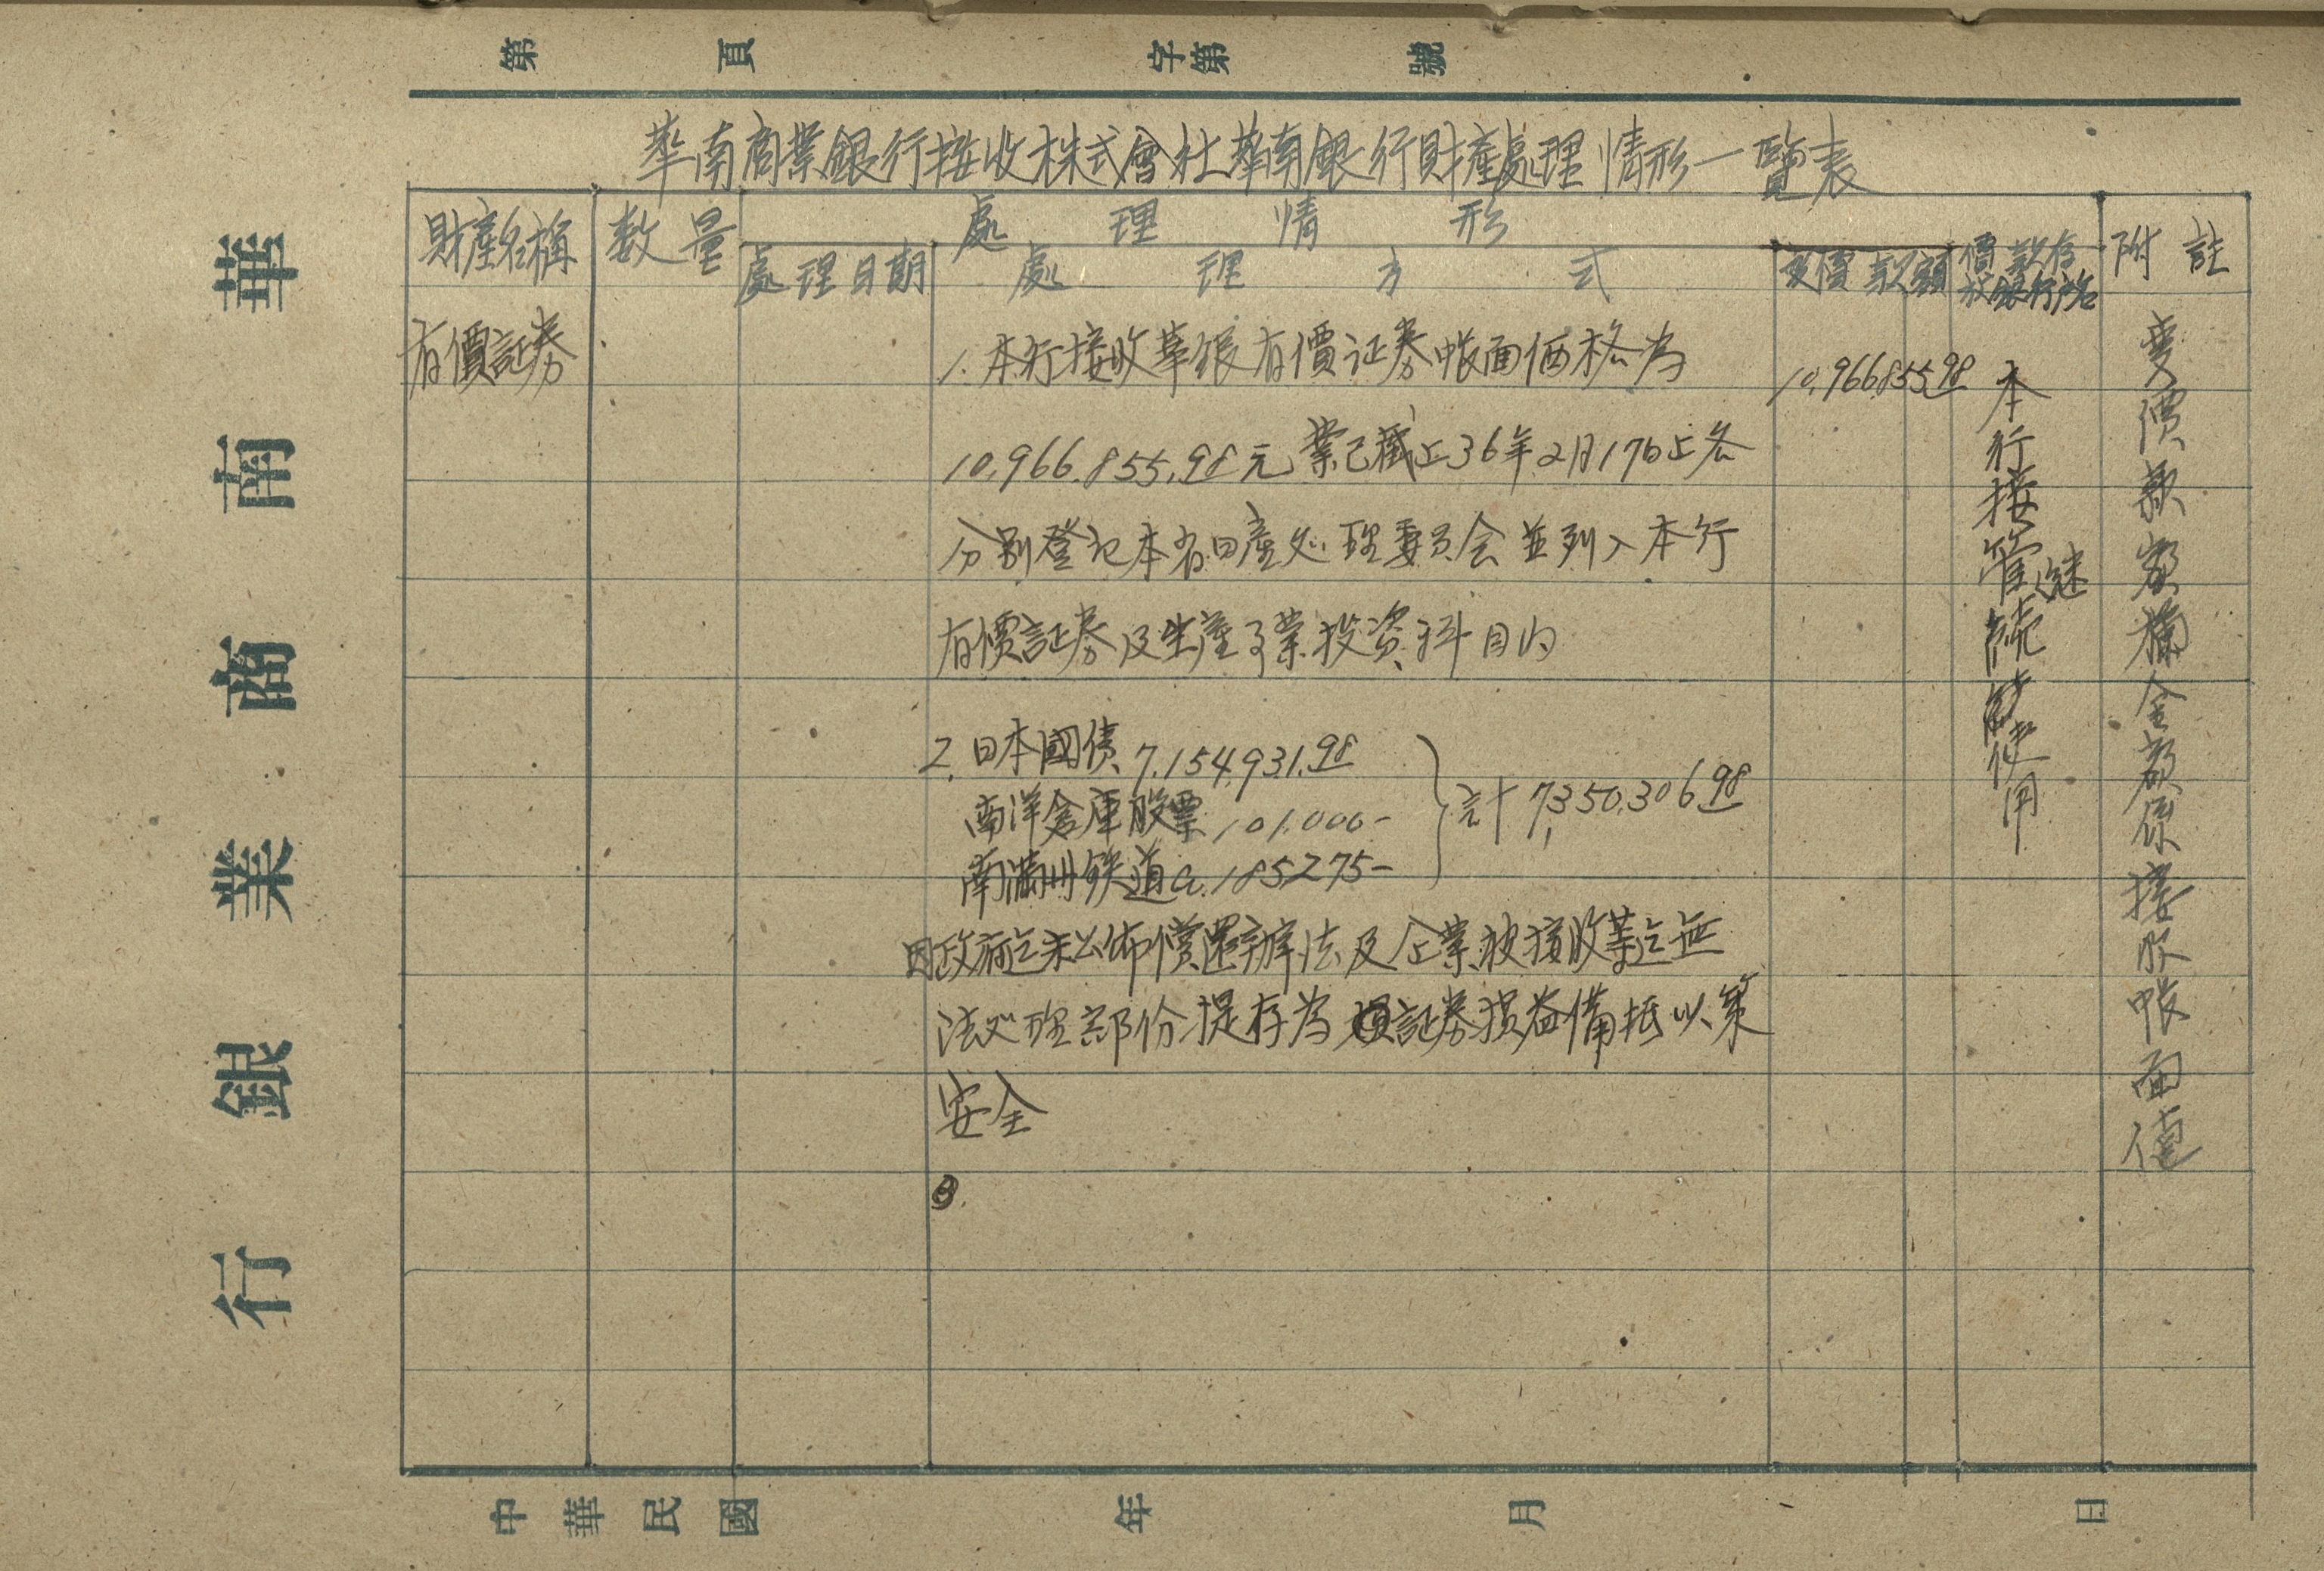 第 頁 字第 號
華南商業銀行接收株式會社華南銀行財產處理情形一覽表
財產名稱 数量 處理情形 附註
處理日期 處理方式 变價款額 價款存放銀行戶名
有價証券
1. 本行接收華銀有價证券帐面価格为
10.966.855.98元業已截止36年2月17日止
分别登记本省日產处理委员会並列入本行
有價証券及生產事業投资科目内
2. 日本國债 7.154.931.98
南洋倉庫股票 101.000-
南滿州鉄道 185275-
計 7,350.306 98
因政府迄未公佈償還辦法及企業被接收業迄無
法处理部份提存为証券损益備抵以策
安全
10.966.855.98
本行接管継続使用
变價款额欄金额係接收帐面值
華南商業銀行
中華民國 年 月 日